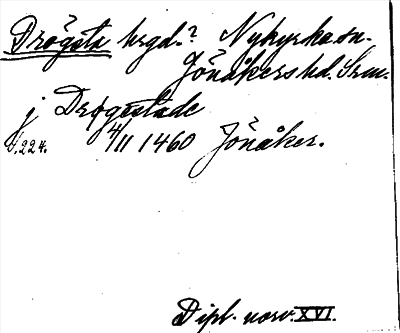 Drögsta hrgd.? Nykyrka sn.
Jönåkers hd. Srm.
j Drøgxstade
s.224. 4/11 1460 Jönåker.
Dipl. norv. XVI.